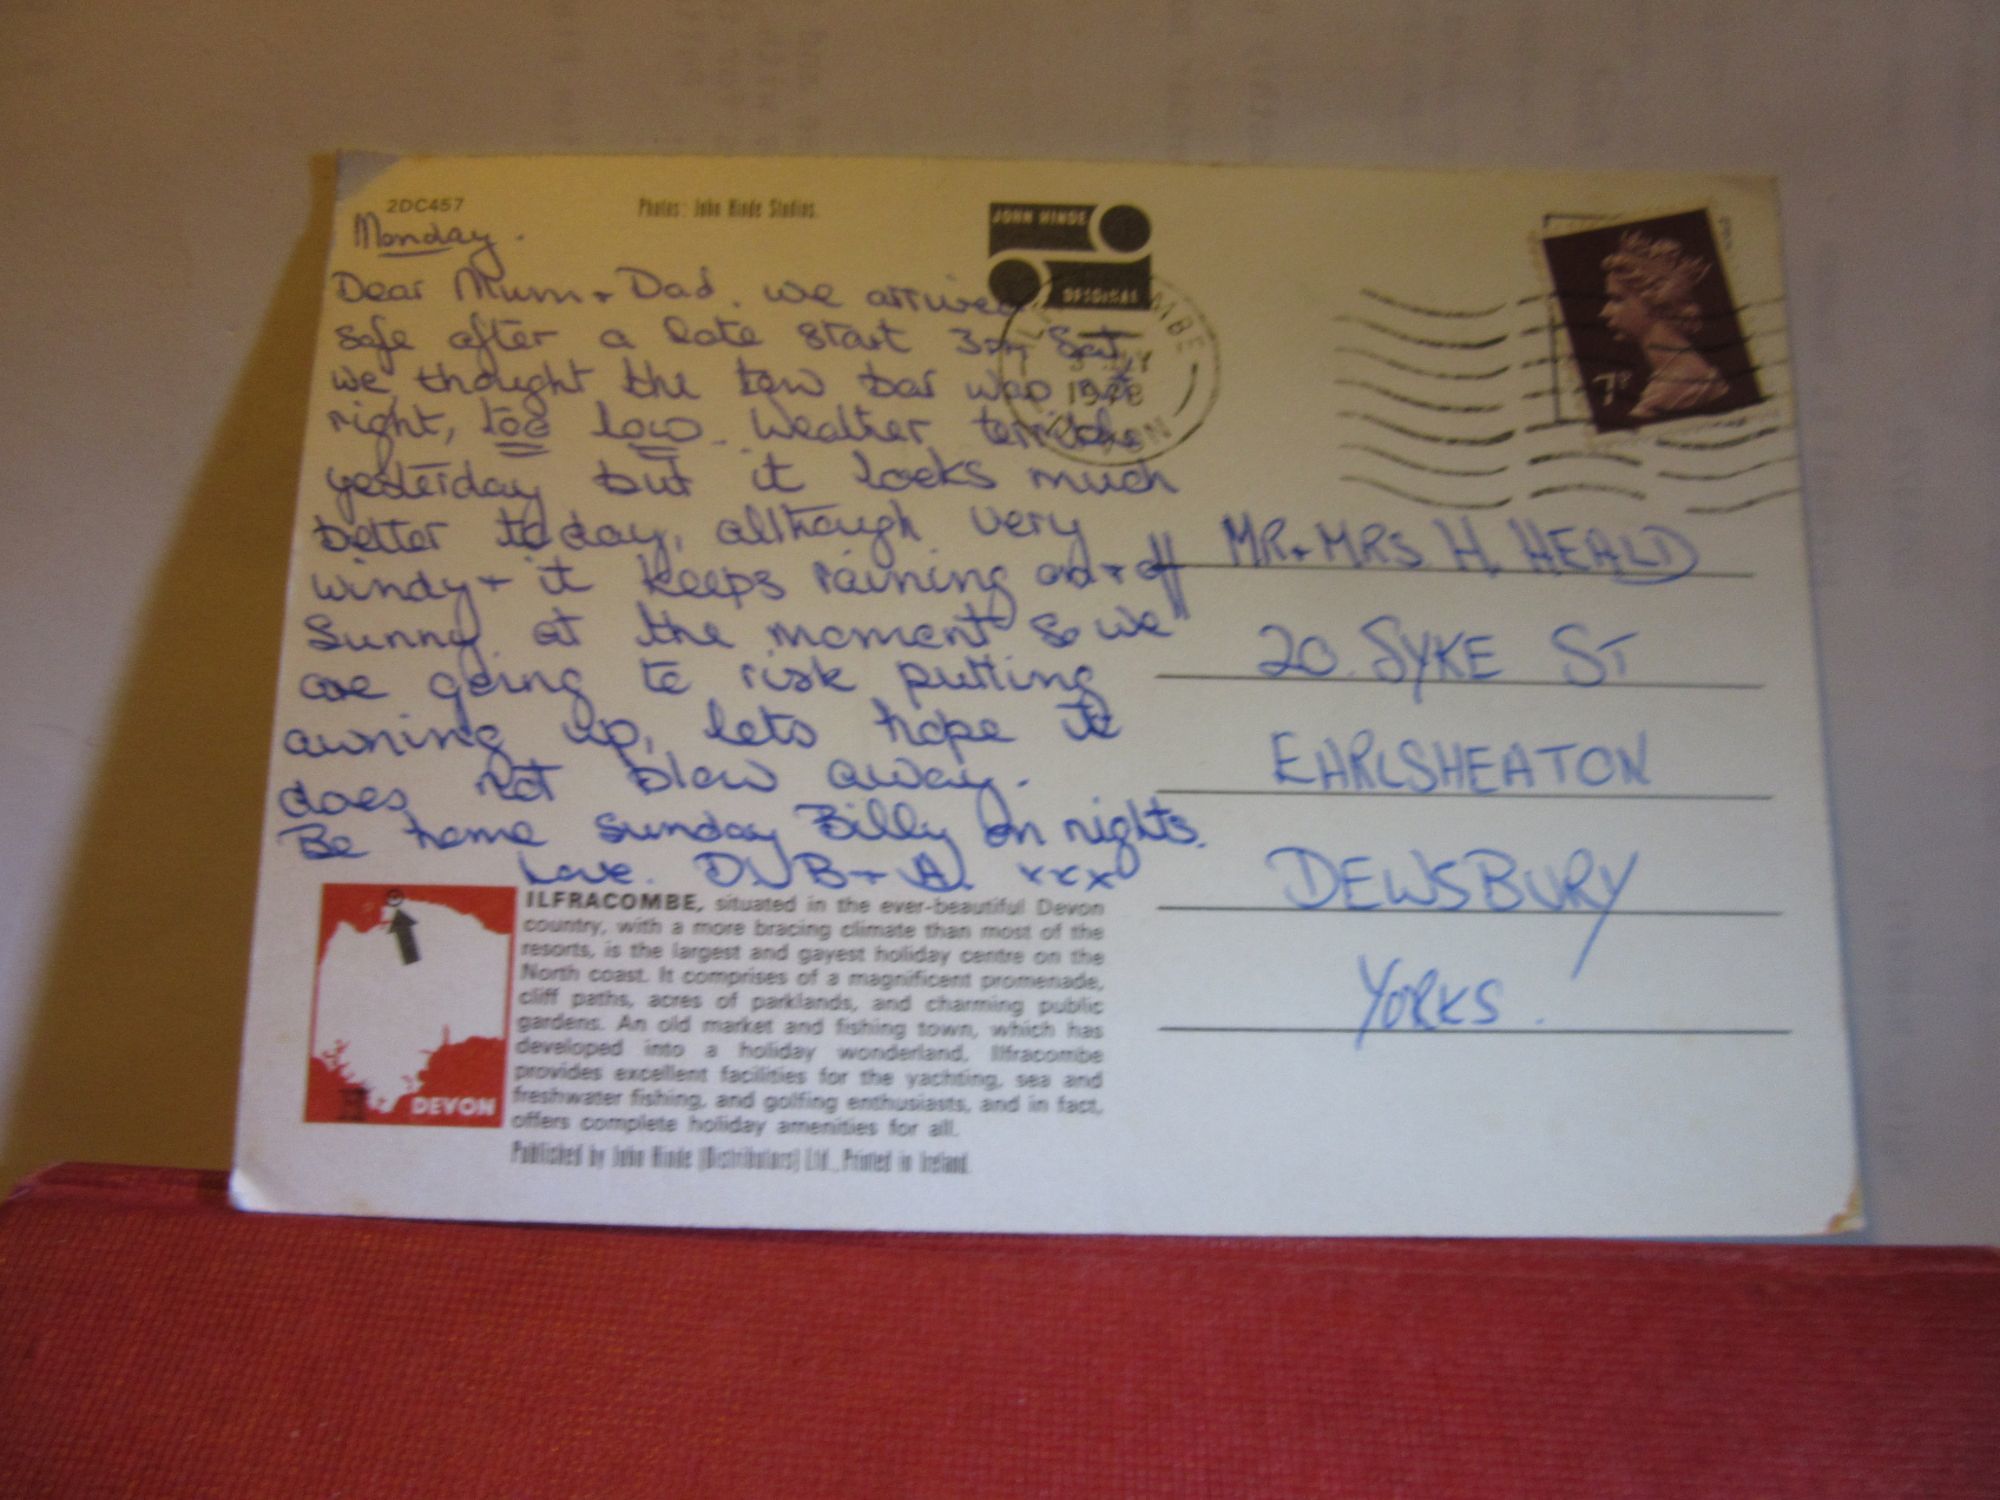 2DC457
Photos: John Hinde Studios.
JOHN HINDE
ORIGINAL
Monday.
Dear Mum + Dad. we arrived
safe after a late start 3pm Sat,
we thought the tow bar was not
right, too low. Weather terrible
yesterday but it looks much
better today, although very
windy + it keeps raining on + off
Sunny at the moment so we
are going to risk putting
awning up, lets hope it
does not blow away.
Be home sunday Billy on nights.
Love. D, B + A. xxx
1978
7P
MR + MRS H. HEALD
20. SYKE ST
EARLSHEATON
DEWSBURY
YORKS.
DEVON
ILFRACOMBE, situated in the ever-beautiful Devon
country, with a more bracing climate than most of the
resorts, is the largest and gayest holiday centre on the
North coast. It comprises of a magnificent promenade,
cliff paths, acres of parklands, and charming public
gardens. An old market and fishing town, which has
developed into a holiday wonderland, Ilfracombe
provides excellent facilities for the yachting, sea and
freshwater fishing, and golfing enthusiasts, and in fact,
offers complete holiday amenities for all.
Published by John Hinde (Distributors) Ltd., Printed in Ireland.